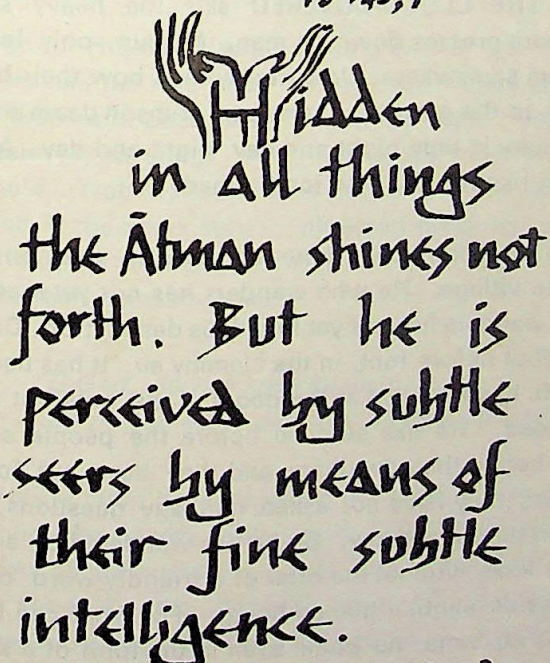 Hidden
in all things
the Ātman shines not
forth. But he is
perceived by subtle
seers by means of
their fine subtle
intelligence.